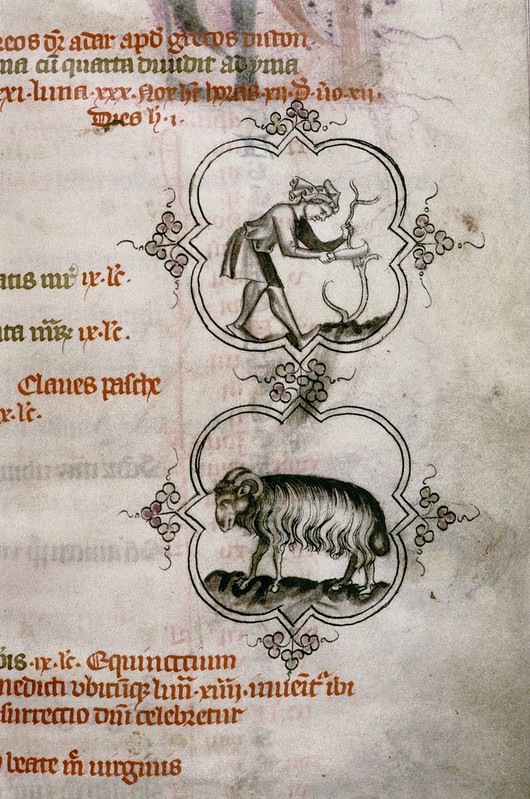 reos dr̄ adar apd̕ grecos diston
ma cū quarta diuidit ad yma
xxi luna ·xxx· Nox ht̄ horas ·xii· D̕ ūo ·xii·
Dies h̕ ·i·
atis mr̄ ix · lc̄ ·
ix · lc̄ ·
Claues pasche
x · lc̄ ·
ix · lc̄ · Equinctium
nedicti vbicūq; lun̄ · xiiii · inueit᷑ ibi
surrectio dn̄i celebretur
beate m̄ uirginis